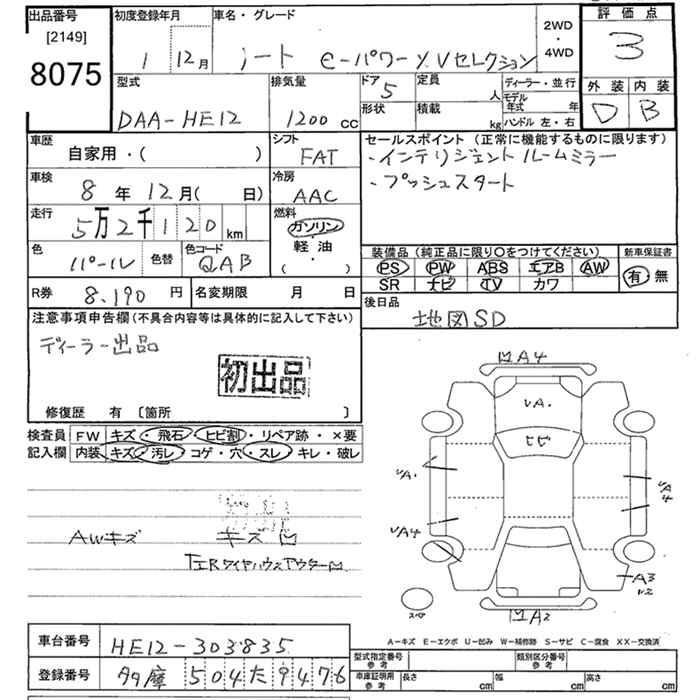 出品番号
[2149]
8075
初度登録年月
1 12月
車名・グレード
ノート e-パワー X Vセレクション
2WD
・
4WD
評価点
3
外装 内装
D B
型式
DAA-HE12
排気量
1200 cc
ドア 5
形状
定員 人
積載 kg
ディーラー・並行
モデル年式 年
ハンドル 左・右
車歴
自家用・( )
シフト
FAT
車検
8 年 12 月( 日)
冷房
AAC
走行
5万2千120 km
燃料
ガソリン
・
軽油
・
( )
色
パール
色替
色コード
QAB
R券 8,190 円
名変期限 月 日
セールスポイント (正常に機能するものに限ります)
・インテリジェントルームミラー
・プッシュスタート
装備品(純正品に限り○をつけてください)
PS PW ABS エアB AW
SR ナビ TV カワ
新車保証書
有・無
後日品
地図SD
注意事項申告欄(不具合内容等は具体的に記入して下さい)
ディーラー出品
初出品
修復歴 有 〔箇所 〕
検査員記入欄
FW キズ・飛石・ヒビ割・リペア跡・×要
内装 キズ・汚レ・コゲ・穴・スレ・キレ・破レ
AWキズ キズ凹
左IRタイヤハウスアウター凹
凹A4
VA.
ヒビ
VA.
VA4
VA4
A3
凹A2
スペア
A-キズ E-エクボ U-凹み W-補修跡 S-サビ C-腐食 XX-交換済
車台番号 HE12-303835
登録番号 多摩 504 た 9476
型式指定番号 参考
類別区分番号 参考
車庫証明用 参考
長さ cm
幅 cm
高さ cm